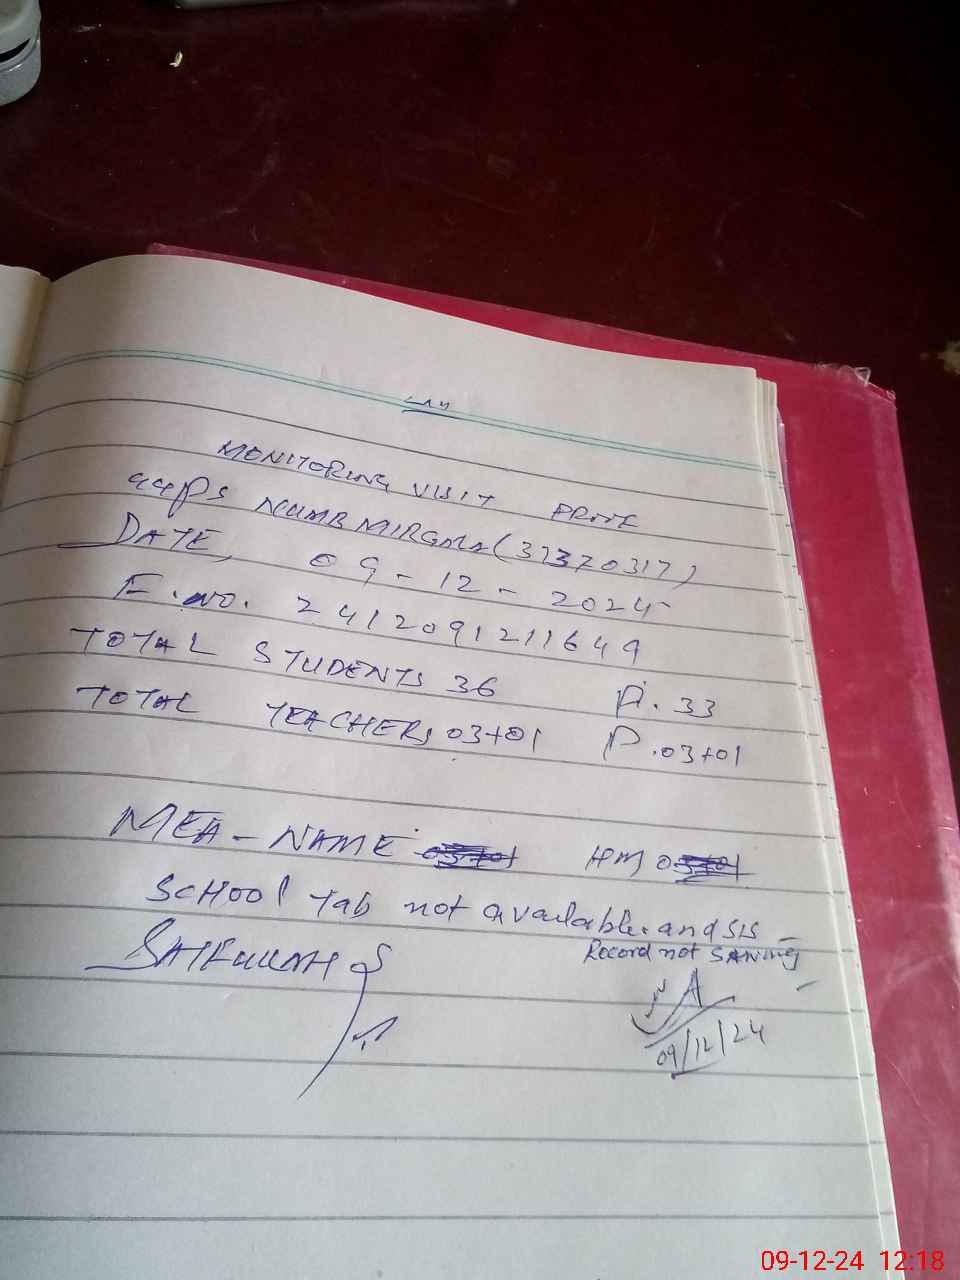 MONITORING VISIT PROOF
GGPS NUMB MIRGMA (37370317)
DATE, 09-12-2024
F.NO. 2412091211649
TOTAL STUDENTS 36 P. 33
TOTAL TEACHERS 03+01 P.03+01
MEA-NAME HM
SCHOOL Tab not available. and SIS
Record not SAVING
09/12/24
09-12-24 12:18